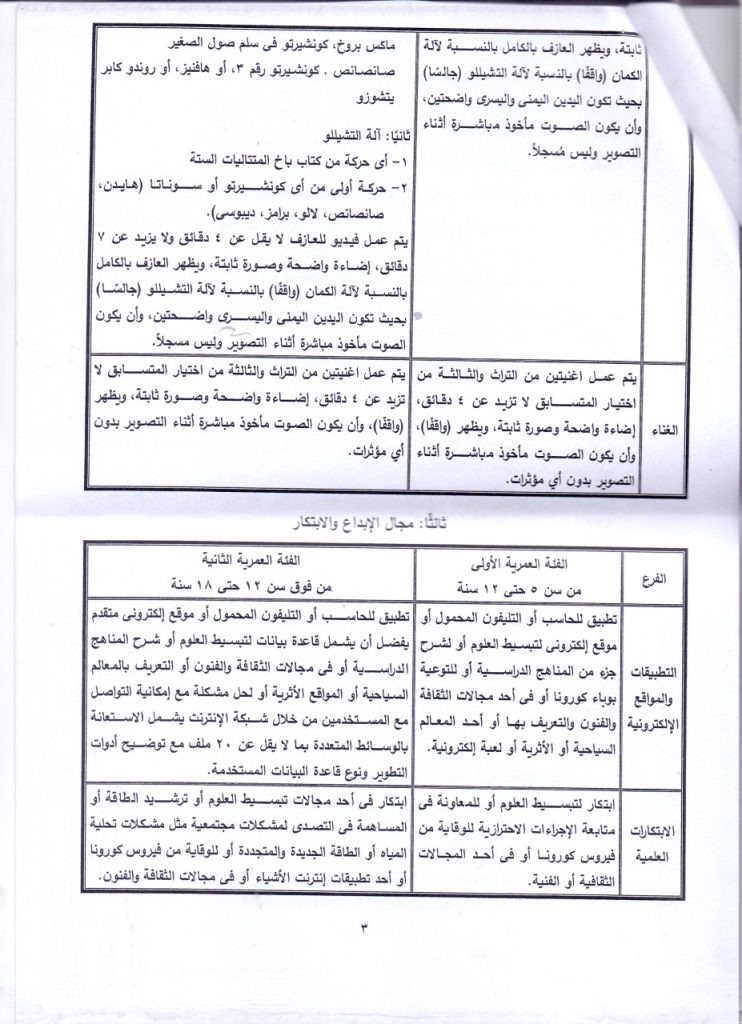 ثابتة، ويظهر العازف بالكامل بالنسبة لآلة
الكمان (واقفًا) بالنسبة لآلة التشيللو (جالسًا)
بحيث تكون اليدين اليمنى واليسرى واضحتين،
وأن يكون الصوت مأخوذ مباشرة أثناء
التصوير وليس مُسجلاً.
ماكس بروخ، كونشيرتو فى سلم صول الصغير
صانصانص . كونشيرتو رقم ٣، أو هافنيز، أو روندو كابر
يتشوزو
ثانيًا: آلة التشيللو
١- أى حركة من كتاب باخ المتتاليات الستة
٢- حركة أولى من أى كونشيرتو أو سوناتا (هايدن،
صانصانص، لالو، برامز، ديبوسى).
يتم عمل فيديو للعازف لا يقل عن ٤ دقائق ولا يزيد عن ٧
دقائق، إضاءة واضحة وصورة ثابتة، ويظهر العازف بالكامل
بالنسبة لآلة الكمان (واقفًا) بالنسبة لآلة التشيللو (جالسًا)
بحيث تكون اليدين اليمنى واليسرى واضحتين، وأن يكون
الصوت مأخوذ مباشرة أثناء التصوير وليس مسجلاً.
الغناء
يتم عمل اغنيتين من التراث والثالثة من
اختيار المتسابق لا تزيد عن ٤ دقائق،
إضاءة واضحة وصورة ثابتة، ويظهر (واقفًا)،
وأن يكون الصوت مأخوذ مباشرة أثناء
التصوير بدون أي مؤثرات.
يتم عمل اغنيتين من التراث والثالثة من اختيار المتسابق لا
تزيد عن ٤ دقائق، إضاءة واضحة وصورة ثابتة، ويظهر
(واقفًا)، وأن يكون الصوت مأخوذ مباشرة أثناء التصوير بدون
أي مؤثرات.
ثالثًا: مجال الإبداع والابتكار
الفرع
الفئة العمرية الأولى
من سن ٥ حتى ١٢ سنة
الفئة العمرية الثانية
من فوق سن ١٢ حتى ١٨ سنة
التطبيقات
والمواقع
الإلكترونية
تطبيق للحاسب أو التليفون المحمول أو
موقع إلكترونى لتبسيط العلوم أو لشرح
جزء من المناهج الدراسية أو للتوعية
بوباء كورونا أو فى أحد مجالات الثقافة
والفنون والتعريف بها أو أحد المعالم
السياحية أو الأثرية أو لعبة إلكترونية.
تطبيق للحاسب أو التليفون المحمول أو موقع إلكترونى متقدم
يفضل أن يشمل قاعدة بيانات لتبسيط العلوم أو شرح المناهج
الدراسية أو فى مجالات الثقافة والفنون أو التعريف بالمعالم
السياحية أو المواقع الأثرية أو لحل مشكلة مع إمكانية التواصل
مع المستخدمين من خلال شبكة الإنترنت يشمل الاستعانة
بالوسائط المتعددة بما لا يقل عن ٢٠ ملف مع توضيح أدوات
التطوير ونوع قاعدة البيانات المستخدمة.
الابتكارات
العلمية
ابتكار لتبسيط العلوم أو للمعاونة فى
متابعة الإجراءات الاحترازية للوقاية من
فيروس كورونا أو فى أحد المجالات
الثقافية أو الفنية.
ابتكار فى أحد مجالات تبسيط العلوم أو ترشيد الطاقة أو
المساهمة فى التصدى لمشكلات مجتمعية مثل مشكلات تحلية
المياه أو الطاقة الجديدة والمتجددة أو للوقاية من فيروس كورونا
أو أحد تطبيقات إنترنت الأشياء أو فى مجالات الثقافة والفنون.
٣